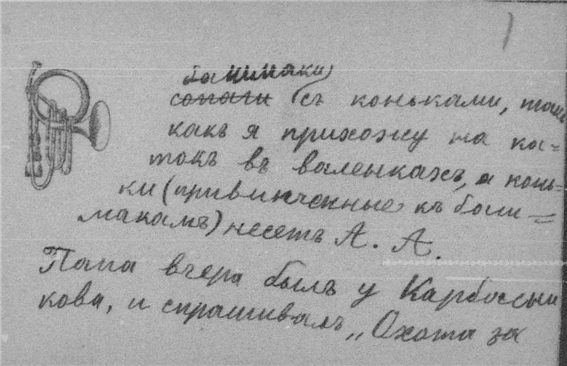 1
башмаки
сапоги (съ коньками, такъ
какъ я прихожу на ка=
токъ въ валенкахъ, а конь=
ки (привинченные къ баш=
макамъ) несетъ А. А.
Папа вчера былъ у Карбасни
кова, и спрашивалъ „Охота за